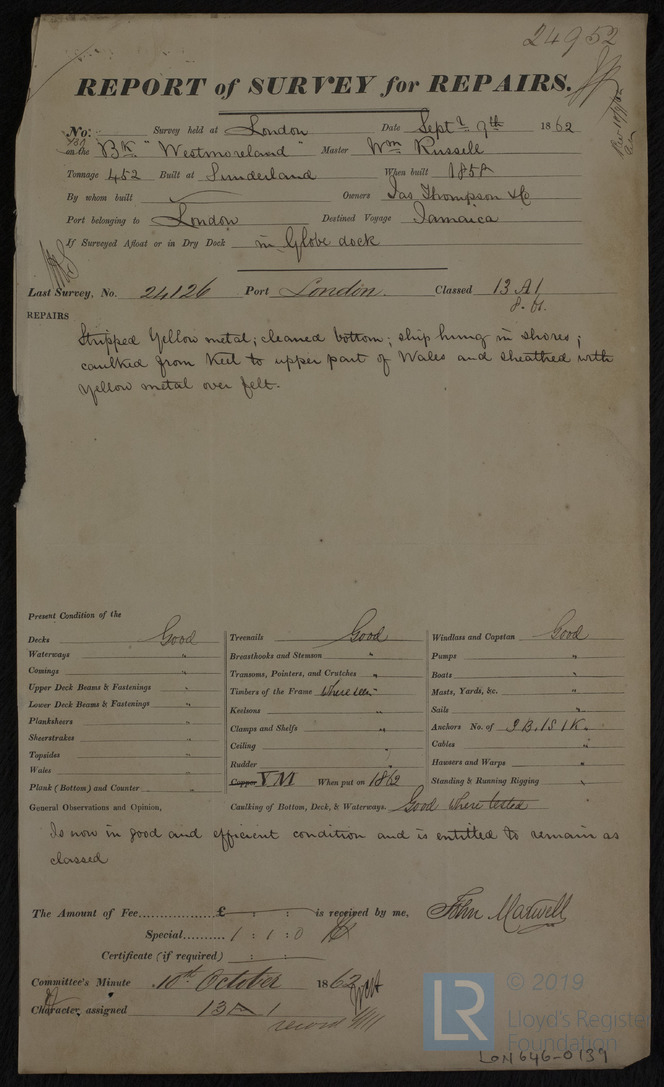 24952
REPORT of SURVEY for REPAIRS.
No: Survey held at London Date Septr 9th 1862
on the Bk "Westmoreland" Master Wm Russell
Tonnage 452 Built at Sunderland When built 1858
By whom built Owners Jas Thompson & Co
Port belonging to London Destined Voyage Jamaica
If Surveyed Afloat or in Dry Dock in Globe dock
Last Survey, No. 24126 Port London. Classed 13 A1
REPAIRS
Stripped Yellow metal; cleaned bottom; ship hung in shores;
caulked from Keel to upper part of Wales and sheathed with
yellow metal over felt.
Present Condition of the
Decks Good
Waterways "
Comings "
Upper Deck Beams & Fastenings "
Lower Deck Beams & Fastenings "
Planksheers "
Sheerstrakes "
Topsides "
Wales "
Plank (Bottom) and Counter "
Treenails Good
Breasthooks and Stemson "
Transoms, Pointers, and Crutches "
Timbers of the Frame where seen "
Keelsons "
Clamps and Shelfs "
Ceiling "
Rudder "
Copper YM When put on 1862
Windlass and Capstan Good
Pumps "
Boats "
Masts, Yards, &c. "
Sails "
Anchors No. of 3B.1S1K.
Cables "
Hausers and Warps "
Standing & Running Rigging "
General Observations and Opinion, Caulking of Bottom, Deck, & Waterways. Good where tested
Is now in good and efficient condition and is entitled to remain as
classed
The Amount of Fee £ : : is received by me, John Maxwell
Special 1 : 1 : 0
Certificate (if required) : :
Committee's Minute 10th October 1862
Character assigned 13 A 1
© 2019
LR
Lloyd's Register
Foundation
LON646-0139